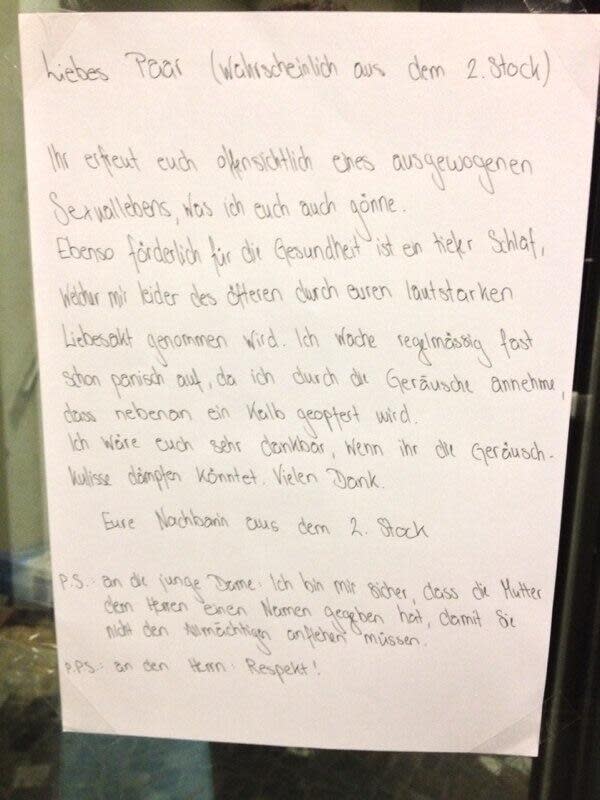 Liebes Paar (Wahrscheinlich aus dem 2. Stock)
Ihr erfreut euch offensichtlich eines ausgewogenen
Sexuallebens, was ich euch auch gönne.
Ebenso förderlich für die Gesundheit ist ein tiefer Schlaf,
welcher mir leider des öfteren durch euren lautstarken
Liebesakt genommen wird. Ich wache regelmässig fast
schon panisch auf, da ich durch die Geräusche annehme,
dass nebenan ein Kalb geopfert wird.
Ich wäre euch sehr dankbar, wenn ihr die Geräusch-
kulisse dämpfen könntet. Vielen Dank.
Eure Nachbarin aus dem 2. Stock
P.S.: an die junge Dame: Ich bin mir sicher, dass die Mutter
dem Herren einen Namen gegeben hat, damit Sie
nicht den Allmächtigen anflehen müssen.
P.PS.: an den Herrn: Respekt!